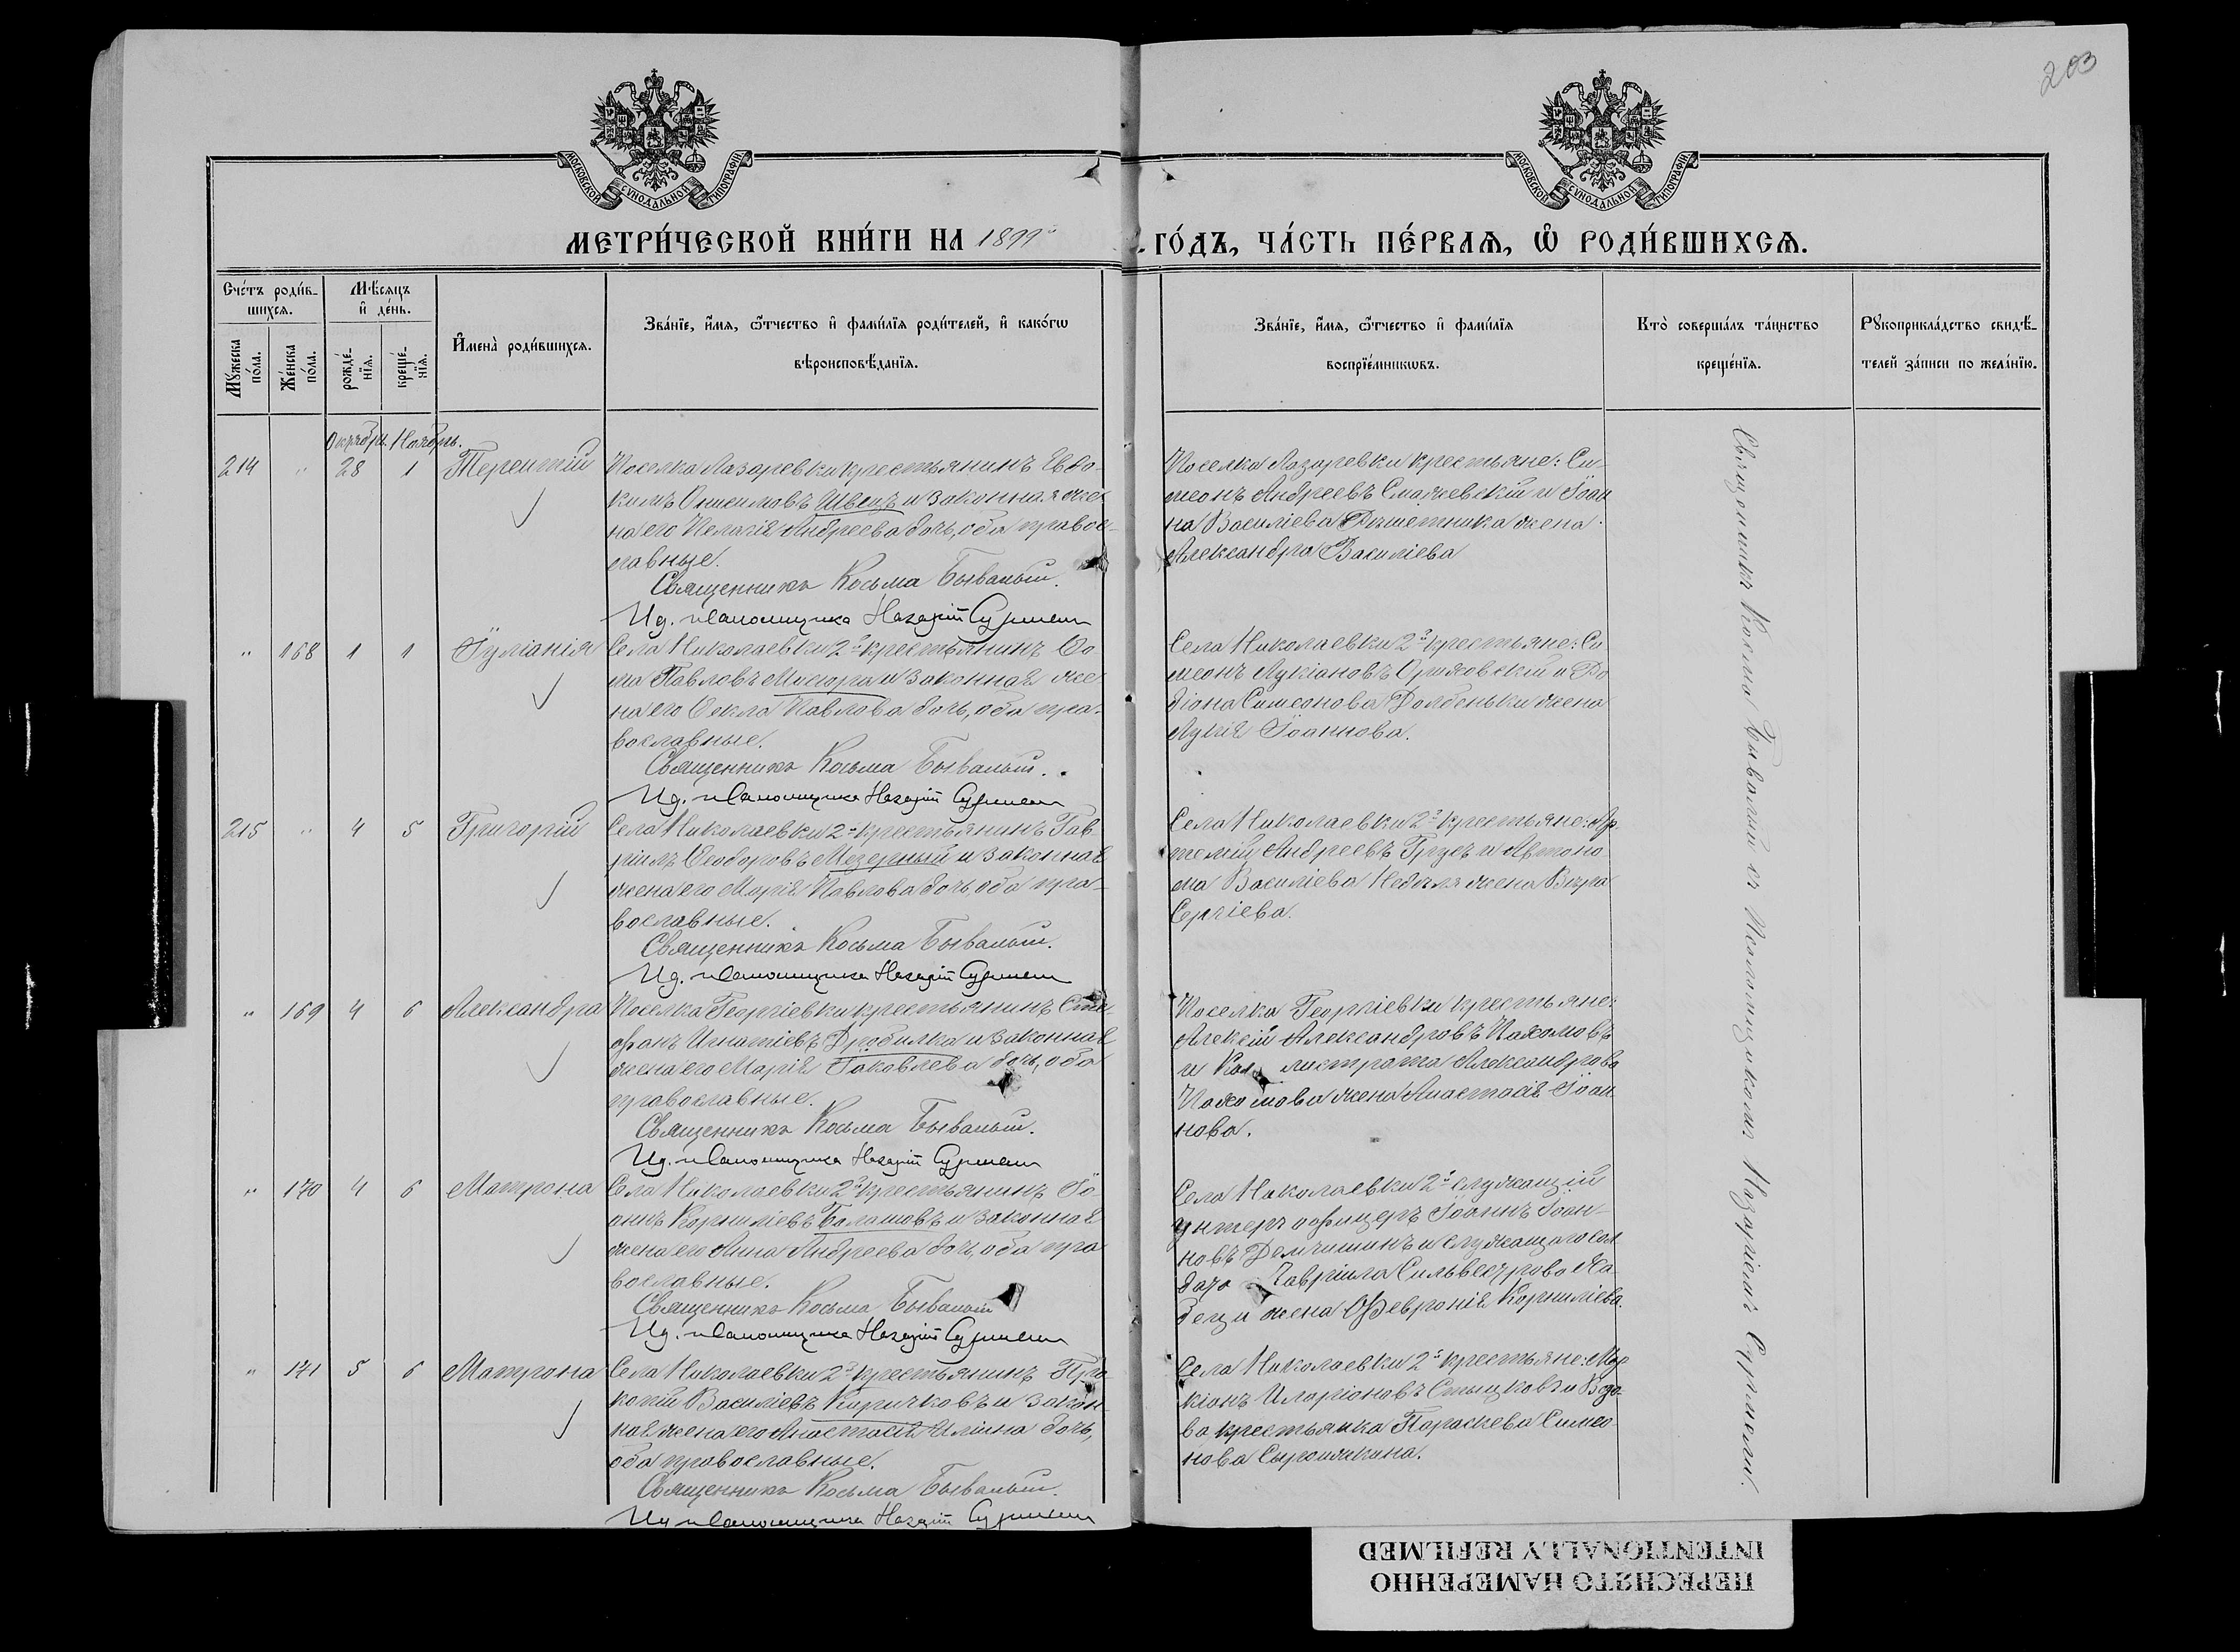 203
МОСКОВСКОЙ СѴНОДАЛЬНОЙ ТИПОГРАФІИ
МОСКОВСКОЙ СѴНОДАЛЬНОЙ ТИПОГРАФІИ
МЕТРИ́ЧЕСКОЙ КНИ́ГИ НА 1899й ГО́ДЪ, ЧА́СТЬ ПЕ́РВАѦ, Ѽ РОДИ́ВШИХСѦ.
Сче́тъ роди́в-
шихсѧ.
Мꙋ́жеска по́ла.
Же́нска по́ла.
Мѣ́сяцъ и҆ де́нь.
рожде́-нїѧ.
креще́-нїѧ.
И҆мена̀ роди́вшихсѧ.
Зва́нїе, и҆́мѧ, ѻ҆́тчество и҆ фами́лїѧ роди́телей, и҆ како́гѡ
вѣроисповѣ́данїѧ.
Зва́нїе, и҆́мѧ, ѻ҆́тчество и҆ фами́лїѧ
воспрїе́мникѡвъ.
Кто̀ соверша́лъ та́инство
креще́нїѧ.
Рꙋкоприкла́дство свидѣ́-
телей за́писи по жела́нїю.
Октябрь. Ноябрь.
214 " 28 1 Терентій
Поселка Лазаревки крестьянинъ Евдо-
кимъ Онисимовъ Швецъ и законная же-
на его Пелагія Андреева дочь, оба правос-
лавные.
Священникъ Косьма Бывалый.
Ид. псаломщика Назарій Сурмели
Поселка Лазаревки крестьяне: Си-
меонъ Андреевъ Смажевскій и Іоан
на Василіева жена
Александра Василіева
" 168 1 1 Іуліанія
Села Николаевки 2й крестьянинъ Ѳо
ма Павловъ и законная же
на его Ѳекла Павлова дочь, оба пра-
вославные.
Священникъ Косьма Бывалый.
Ид. псаломщика Назарій Сурмели
Села Николаевки 2й крестьяне: Си
меонъ Лукіановъ Оржеховскій и Ро
діона Симеонова Долбеньки жена
Лукія Іоаннова.
215 " 4 5 Григорій
Села Николаевки 2й крестьянинъ Гав
ріилъ Ѳеодоровъ Мезерный и законная
жена его Марія Павлова дочь, оба пра-
вославные.
Священникъ Косьма Бывалый.
Ид. псаломщика Назарій Сурмели
Села Николаевки 2й крестьяне: Ар
темій Андреевъ и Автоно
ма Василіева Недѣля жена Вѣра
Сергіева.
" 169 4 6 Александра
Поселка Георгіевки крестьянинъ Сте-
фанъ Игнатіевъ Дробилка и законная
жена его Марія Іаковлева дочь, оба
православные.
Священникъ Косьма Бывалый.
Ид. псаломщика Назарій Сурмели
Поселка Георгіевки крестьяне:
Алексій Александровъ Пахомовъ
и Кал листрата Александрова
Пахомова жена Анастасія Іоан
нова.
" 170 4 6 Матрона
Села Николаевки 2й крестьянинъ Іо-
аннъ Корниліевъ Балашовъ и законная
жена его Анна Андреева дочь, оба пра
вославные.
Священникъ Косьма Бывалый
Ид. псаломщика Назарій Сурмели
Села Николаевки 2й служащій
унтеръ офицеръ Іоаннъ Іоан-
новъ Демчишинъ и служащаго сол
дата Гавріила Сильвестрова
жена Февронія Корниліева.
" 171 5 6 Матрона
Села Николаевки 2й крестьянинъ Про
копій Василіевъ Киричковъ и закон
ная жена его Анастасія Иліина дочь,
оба православные.
Священникъ Косьма Бывалый.
Ид псаломщика Назарій Сурмели
Села Николаевки 2й крестьяне: Мар
кіанъ Иларіоновъ Стышковъ и Вдо-
ва крестьянка Параскева Симео-
нова Сыромякина.
Священникъ Косма Бывалый съ Псаломщикомъ Назаріемъ Сурмели.
ПЕРЕСНЯТО НАМЕРЕННО
INTENTIONALLY REFILMED